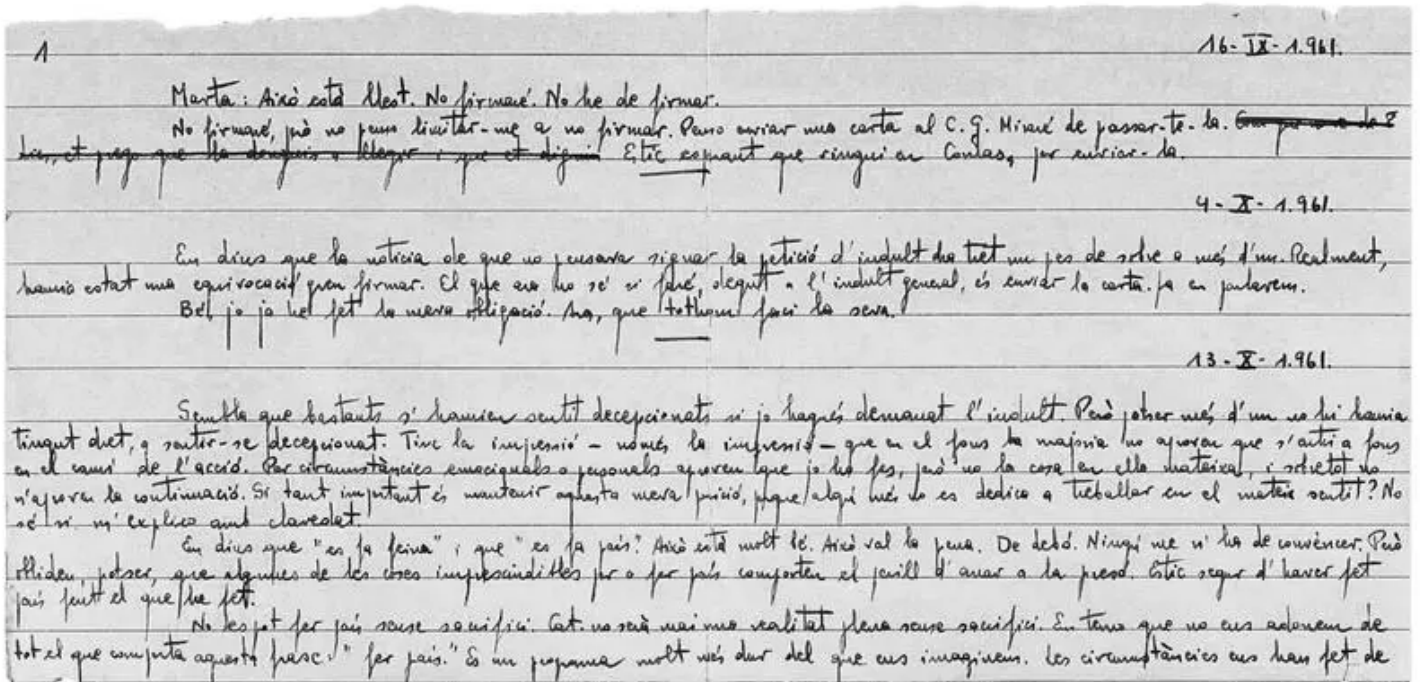 1
16-IX-1.961.
Marta: Això està llest. No firmaré. No he de firmar.
No firmaré, però no penso limitar-me a no firmar. Penso enviar una carta al C.G. Miraré de passar-te-la.
et prego que la donguis a llegir i que et diguin Estic esperant que vingui en Comas, per enviar-la.
4-X-1.961.
Em dius que la notícia de que no pensava signar la petició d'indult ha tret un pes de sobre a més d'un. Realment,
hauria estat una equivocació greu firmar. El que ara no sé si faré, degut a l'indult general, és enviar la carta. Ja en parlarem.
Bé, jo ja he fet la meva obligació. Ara, que tothom faci la seva.
13-X-1.961.
Sembla que bastants s'haurien sentit decepcionats si jo hagués demanat l'indult. Però potser més d'un no hi hauria
tingut dret, a sentir-se decepcionat. Tinc la impressió – només la impressió – que en el fons la majoria no aproven que s'entri a fons
en el camí de l'acció. Per circumstàncies emocionals o personals aproven que jo ho fes, però no la cosa en ella mateixa, i sobretot no
n'aproven la continuació. Si tant important és mantenir aquesta meva posició, perque algú més no es dedica a treballar en el mateix sentit? No
sé si m'explico amb claredat.
Em dius que "es fa feina" i que "es fa país". Això està molt bé. Això val la pena. De debó. Ningú me n'ha de convèncer. Però
obliden, potser, que algunes de les coses imprescindibles per a fer país comporten el perill d'anar a la presó. Estic segur d'haver fet
país fent el que he fet.
No es pot fer país sense sacrifici. Cat. no serà mai una realitat plena sense sacrifici. Em temo que no ens adonem de
tot el que comporta aquesta frase: "fer país." És un programa molt més dur del que ens imaginem. Les circumstàncies ens han fet de